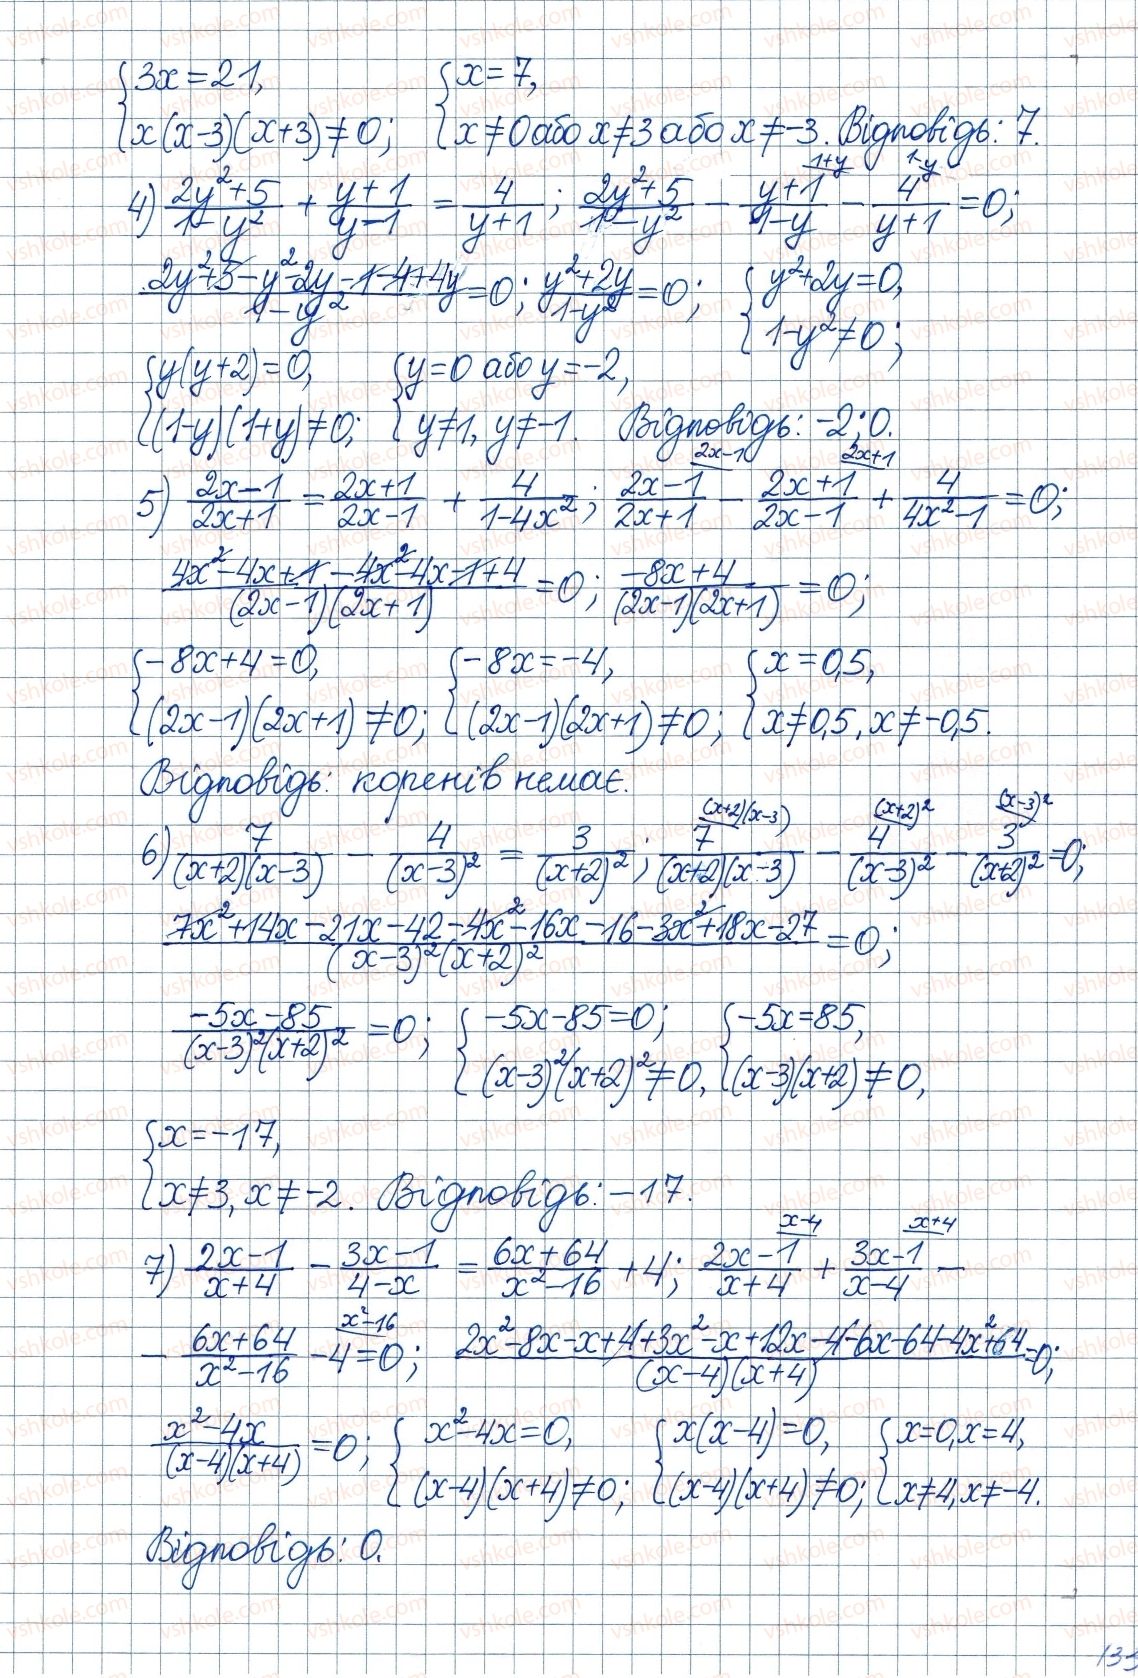 {3x=21, {x=7,
{x(x-3)(x+3)≠0; {x≠0 або x≠3 або x≠-3. Відповідь: 7.
4) (2y²+5)/(1-y²) + (y+1)/(y-1) = 4/(y+1); (2y²+5)/(1-y²) - (y+1)/(1-y) ^(1+y) - 4/(y+1) ^(1-y) =0;
(2y²+5-y²-2y-1-4+4y)/(1-y²)=0; (y²+2y)/(1-y²)=0; {y²+2y=0,
{1-y²≠0;
{y(y+2)=0, {y=0 або y=-2,
{(1-y)(1+y)≠0; {y≠1, y≠-1. Відповідь: -2; 0.
5) (2x-1)/(2x+1) = (2x+1)/(2x-1) + 4/(1-4x²); (2x-1)/(2x+1) ^(2x-1) - (2x+1)/(2x-1) ^(2x+1) + 4/(4x²-1) =0;
(4x²-4x+1-4x²-4x-1+4)/((2x-1)(2x+1)) =0; (-8x+4)/((2x-1)(2x+1)) =0;
{-8x+4=0, {-8x=-4, {x=0,5,
{(2x-1)(2x+1)≠0; {(2x-1)(2x+1)≠0; {x≠0,5, x≠-0,5.
Відповідь: коренів немає.
6) 7/((x+2)(x-3)) - 4/(x-3)² = 3/(x+2)²; 7/((x+2)(x-3)) ^((x+2)(x-3)) - 4/(x-3)² ^((x+2)²) - 3/(x+2)² ^((x-3)²) =0;
(7x²+14x-21x-42-4x²-16x-16-3x²+18x-27)/((x-3)²(x+2)²) =0;
(-5x-85)/((x-3)²(x+2)²) =0; {-5x-85=0; {-5x=85,
{(x-3)²(x+2)²≠0, {(x-3)(x+2)≠0,
{x=-17,
{x≠3, x≠-2. Відповідь: -17.
7) (2x-1)/(x+4) - (3x-1)/(4-x) = (6x+64)/(x²-16) +4; (2x-1)/(x+4) ^(x-4) + (3x-1)/(x-4) ^(x+4) -
- (6x+64)/(x²-16) - 4 ^(x²-16) =0; (2x²-8x-x+4+3x²-x+12x-4-6x-64-4x²+64)/((x-4)(x+4)) =0;
(x²-4x)/((x-4)(x+4)) =0; {x²-4x=0, {x(x-4)=0, {x=0, x=4,
{(x-4)(x+4)≠0; {(x-4)(x+4)≠0; {x≠4, x≠-4.
Відповідь: 0.